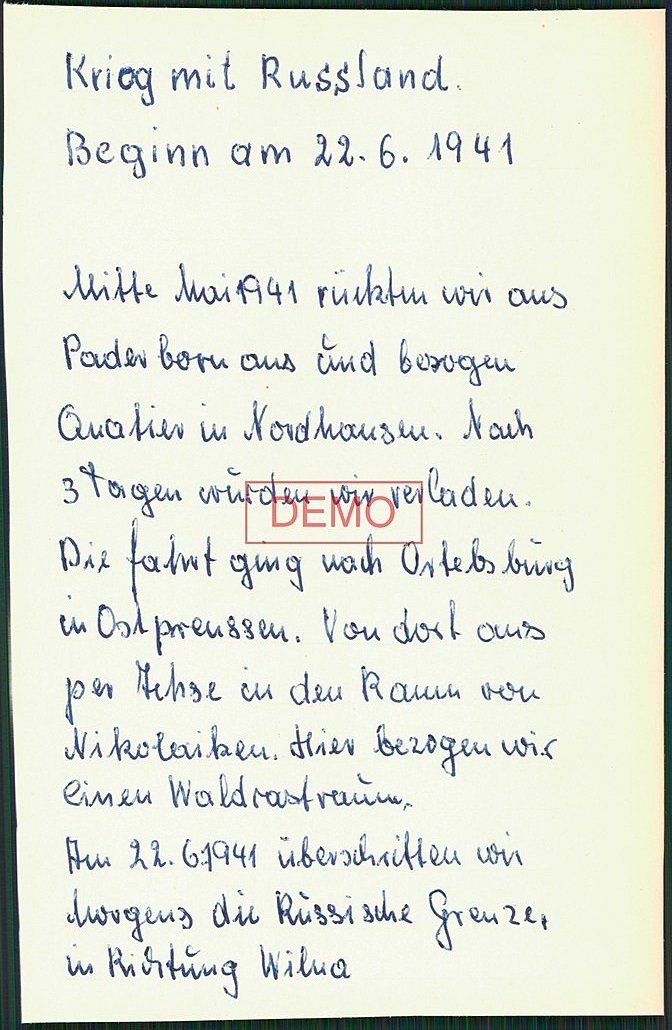 Krieg mit Russland.
Beginn am 22.6.1941
Mitte Mai 1941 rückten wir aus
Paderborn aus und bezogen
Quatier in Nordhausen. Nach
3 Tagen wurden wir verladen.
DEMO
Die fahrt ging nach Ortelsburg
in Ostpreussen. Von dort aus
per Achse in den Raum von
Nikolaiken. Hier bezogen wir
einen Waldrastraum.
Am 22.6.1941 überschritten wir
Morgens die Russische Grenze,
in Richtung Wilna